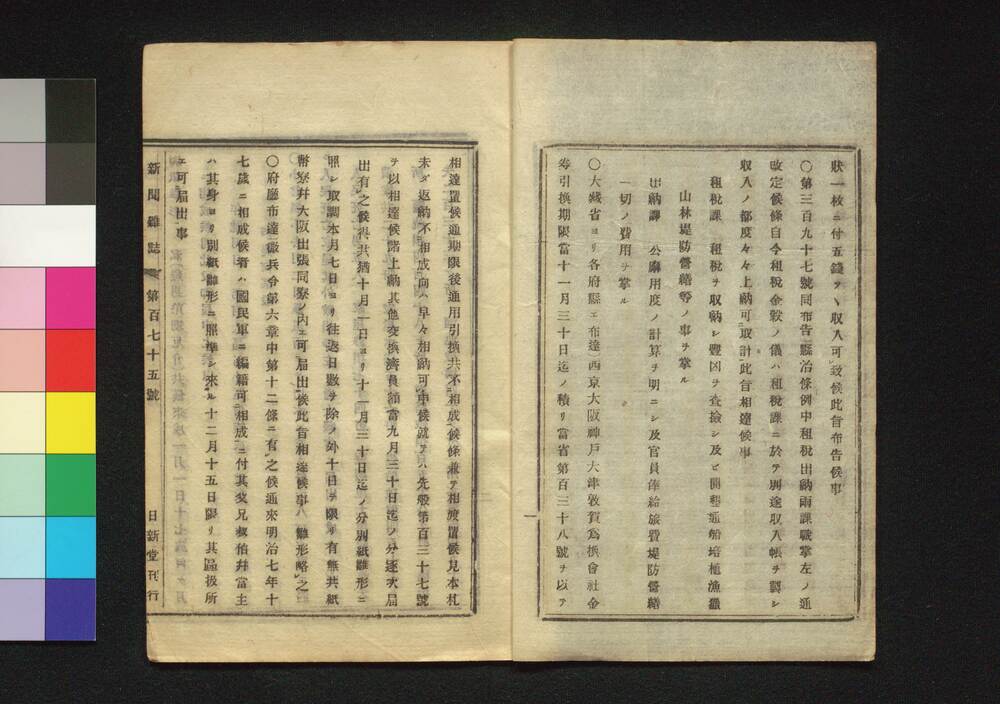 狀一枚ニ付五錢ヲヽ収入可致候此旨布告候事
〇第三百九十七號同布告縣治條例中租稅出納兩課職掌左ノ通
改定候條自今租稅金穀ノ儀ハ租稅課ニ於テ別途収入帳ヲ製シ
収入ノ都度々々上納可取計此旨相達候事
租稅課 租稅ヲ収納シ豐凶ヲ査撿シ及ヒ開墾通船培植漁獵
山林堤防營繕等ノ事ヲ掌ル
出納課 公廨用度ノ計算ヲ明ニシ及官員俸給旅費堤防營繕
一切ノ費用ヲ掌ル
〇大藏省ヨリ各府縣エ布達西京大阪神戶大津敦賀爲換會社金
劵引換期限當十一月三十日迄ノ積リ當省第百三十八號ヲ以テ
相達置候通期限後通用引換共不相成候條兼テ相渡置候見本札
未ダ返納不相成向ハ早々相納可申候就テハ先般第百三十七號
ヲ以相達候諸上納其他交換濟員額當九月三十日迄ノ分逐次屆
出有之候得共猶十月一日ヨリ十一月三十日迄ノ分別紙雛形ニ
照シ取調本月七日ヨリ往返日數ヲ除ノ外十日ヲ限リ有無共紙
幣寮幷大阪出張同寮ノ內エ可屆出候此旨相達候事 雛形略之
〇府廳布達徵兵令第六章中第十二條ニ有之候通來明治七年十
七歲ニ相成候者ハ國民軍ニ編籍可相成ニ付其父兄叔伯幷當主
ハ其身ヨリ別紙雛形ニ照準シ來ル十二月十五日限リ其區扱所
エ可屆出事
新聞雜誌 第百七十五號 日新堂刊行